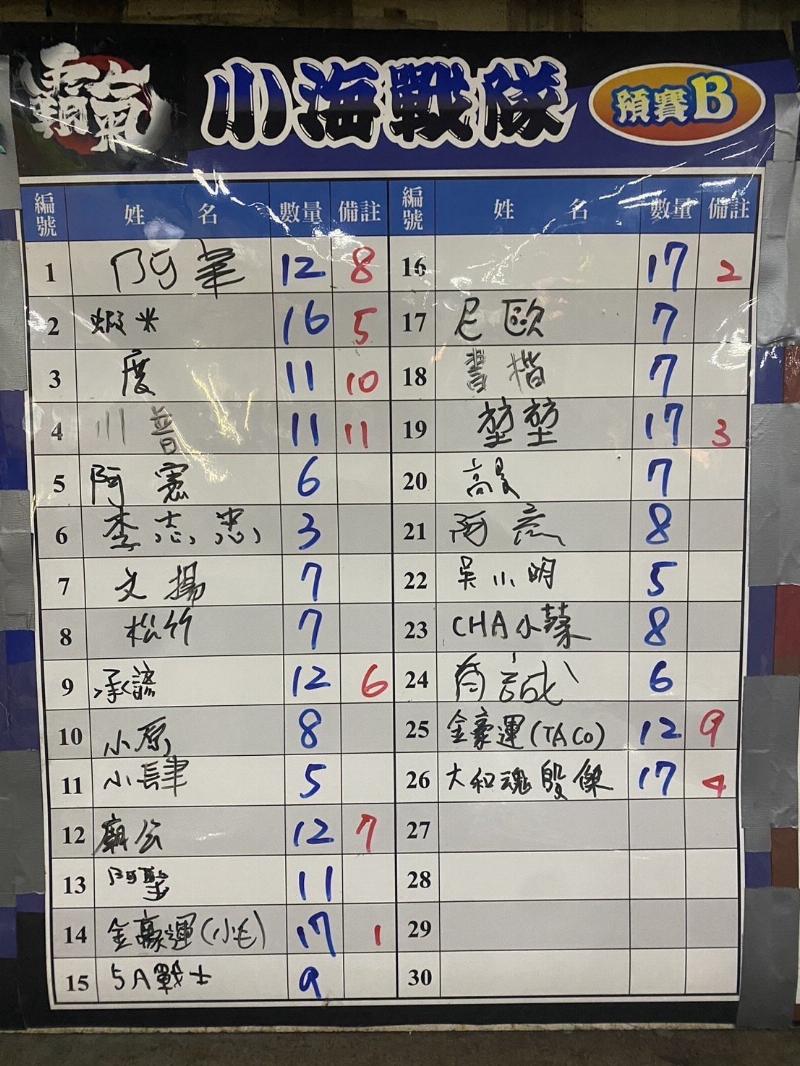 霸氣 小海戰隊 預賽B
編號 姓名 數量 備註
1 阿峯 12 8
2 蝦米 16 5
3 度 11 10
4 川普 11 11
5 阿憲 6
6 李志忠 3
7 文揚 7
8 松竹 7
9 承諺 12 6
10 小原 8
11 小肆 5
12 廟公 12 7
13 阿聖 11
14 金豪運(小毛) 17 1
15 5A戰士 9
編號 姓名 數量 備註
16 17 2
17 尼歐 7
18 書楷 7
19 堃堃 17 3
20 7
21 阿彥 8
22 吳小明 5
23 CHA小蔡 8
24 育誠 6
25 金豪運(TACO) 12 9
26 大和魂殷傑 17 4
27
28
29
30